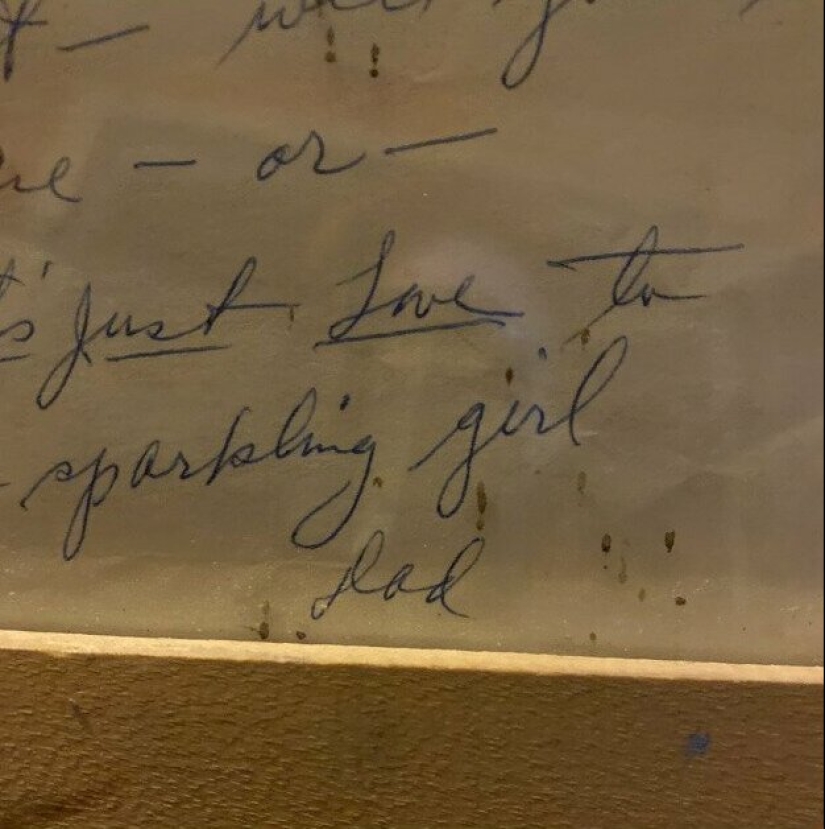 — or —
Just Love to
sparkling girl
Dad